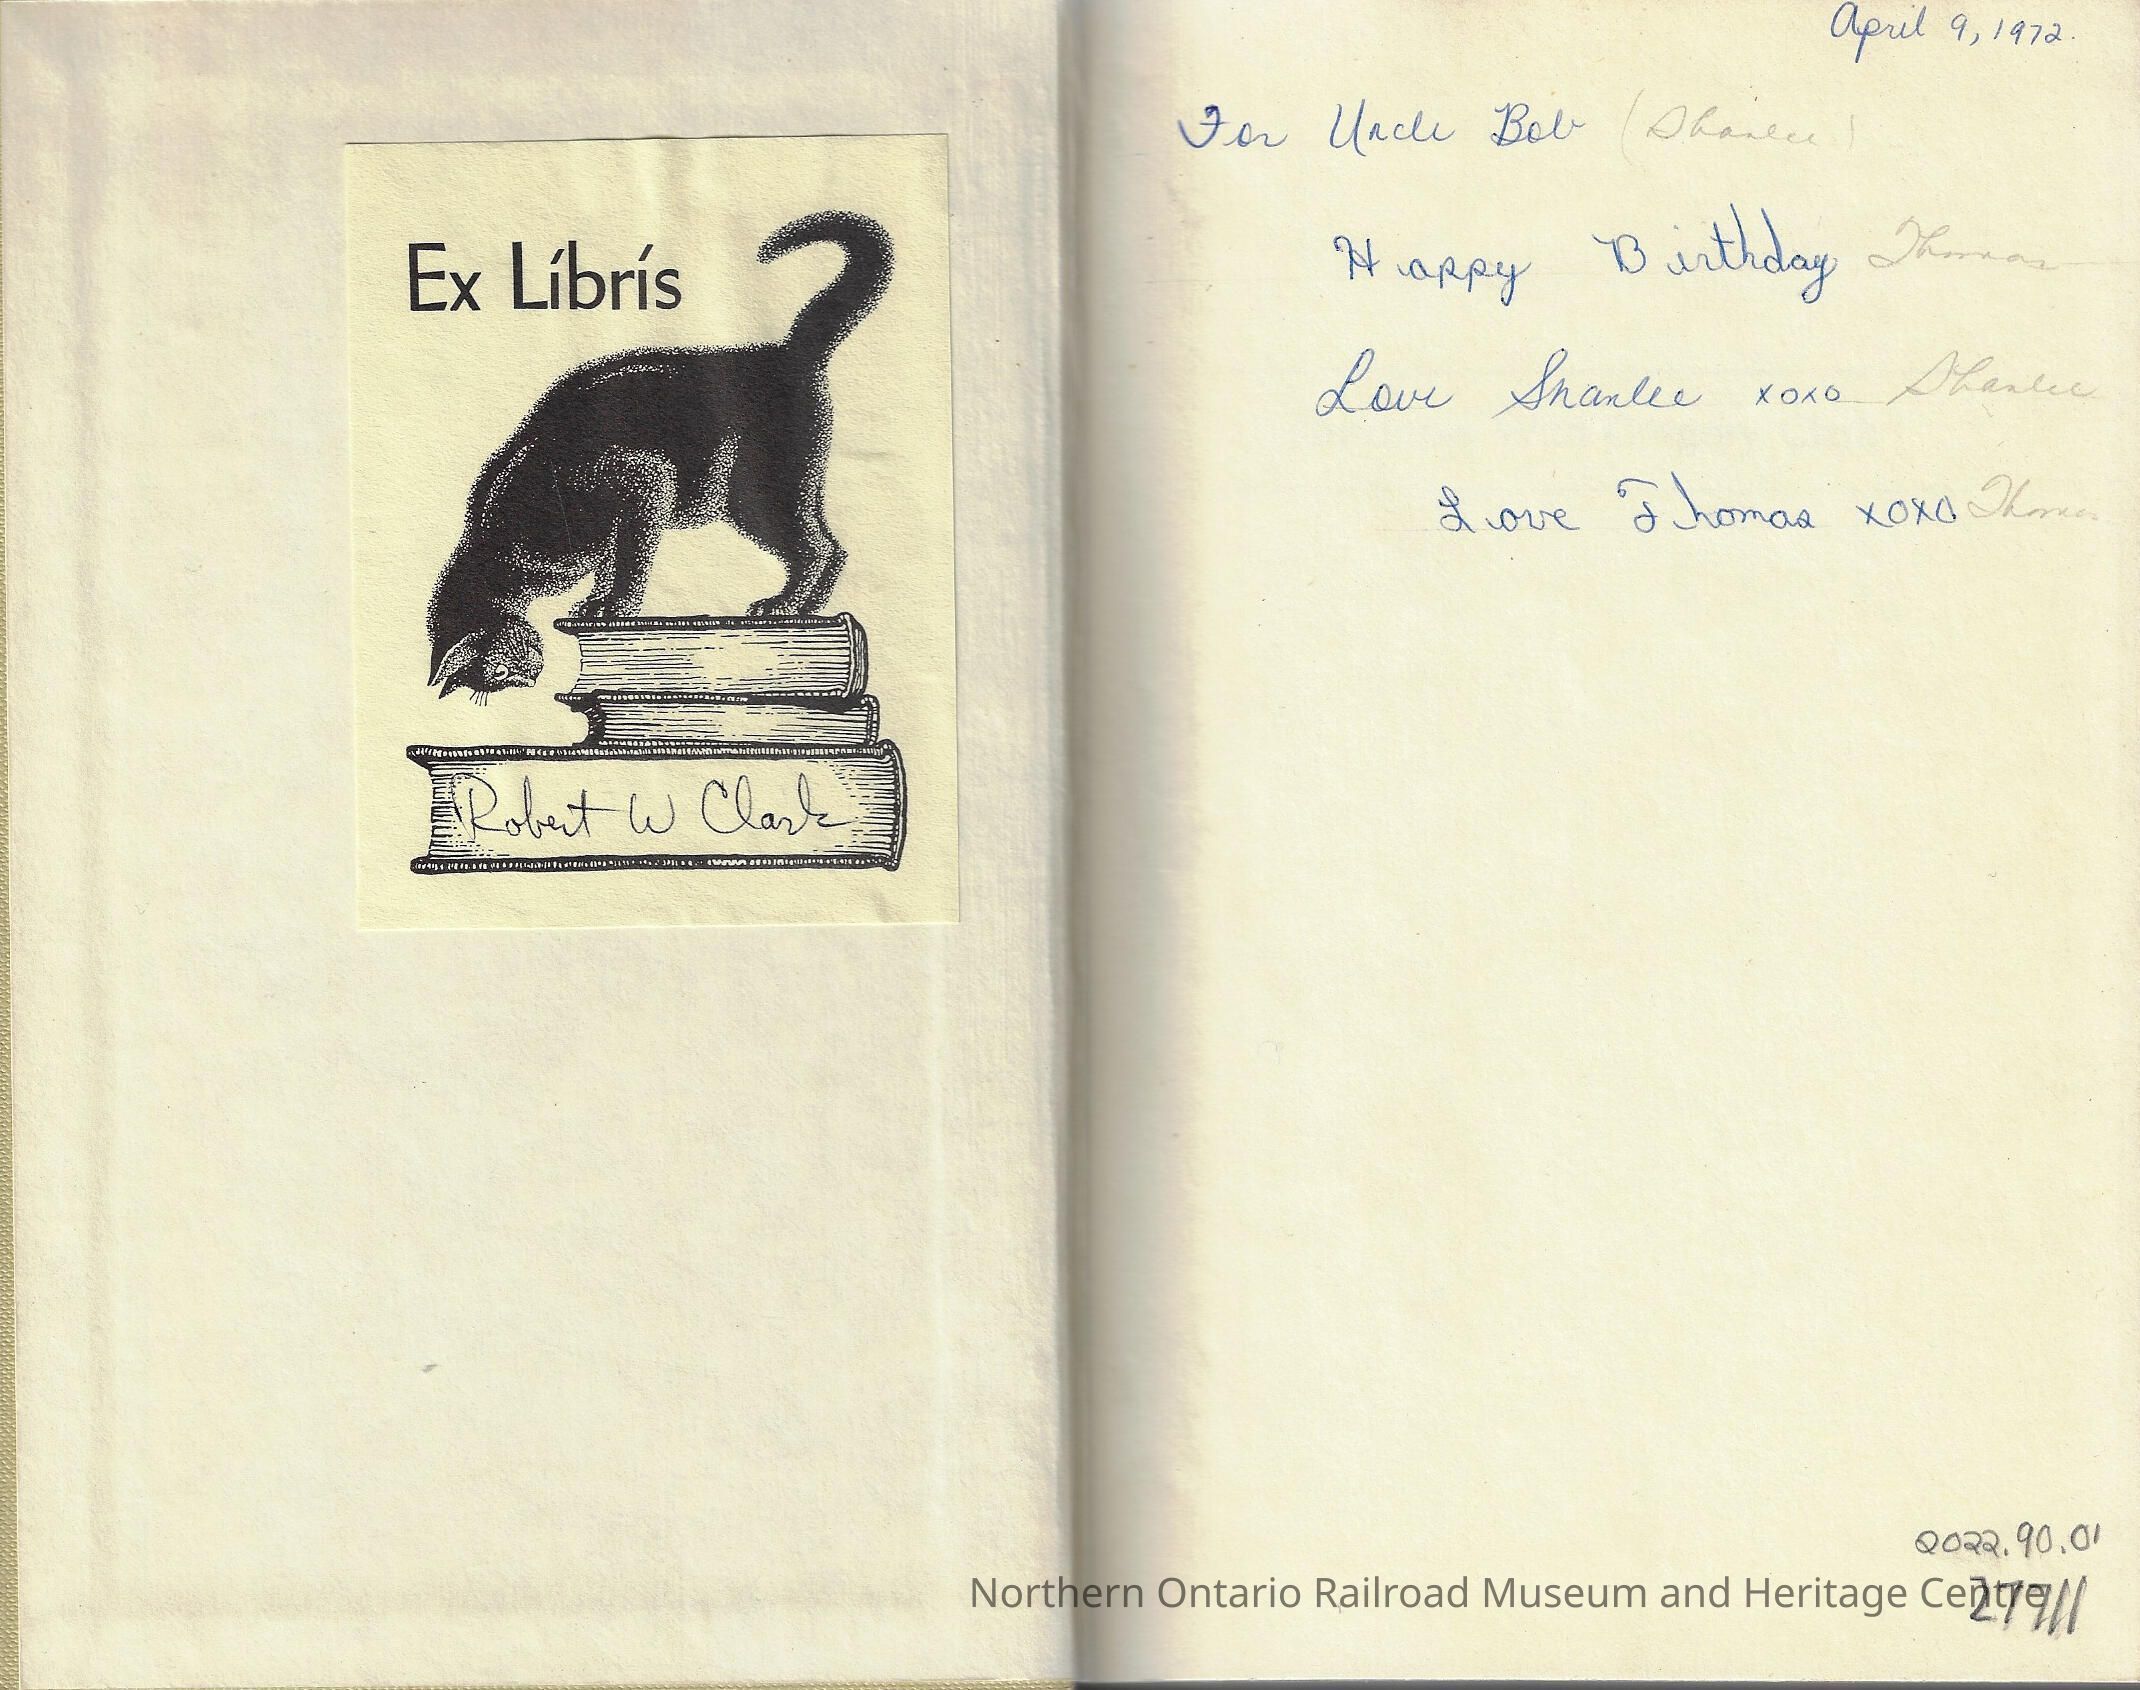 Ex Líbrís
Robert W Clark
April 9, 1972.
For Uncle Bob (Shanlee)
Happy Birthday Thomas
Love Shanlee xoxo Shanlee
Love Thomas xoxo Thomas
2022.90.01
Northern Ontario Railroad Museum and Heritage Centre